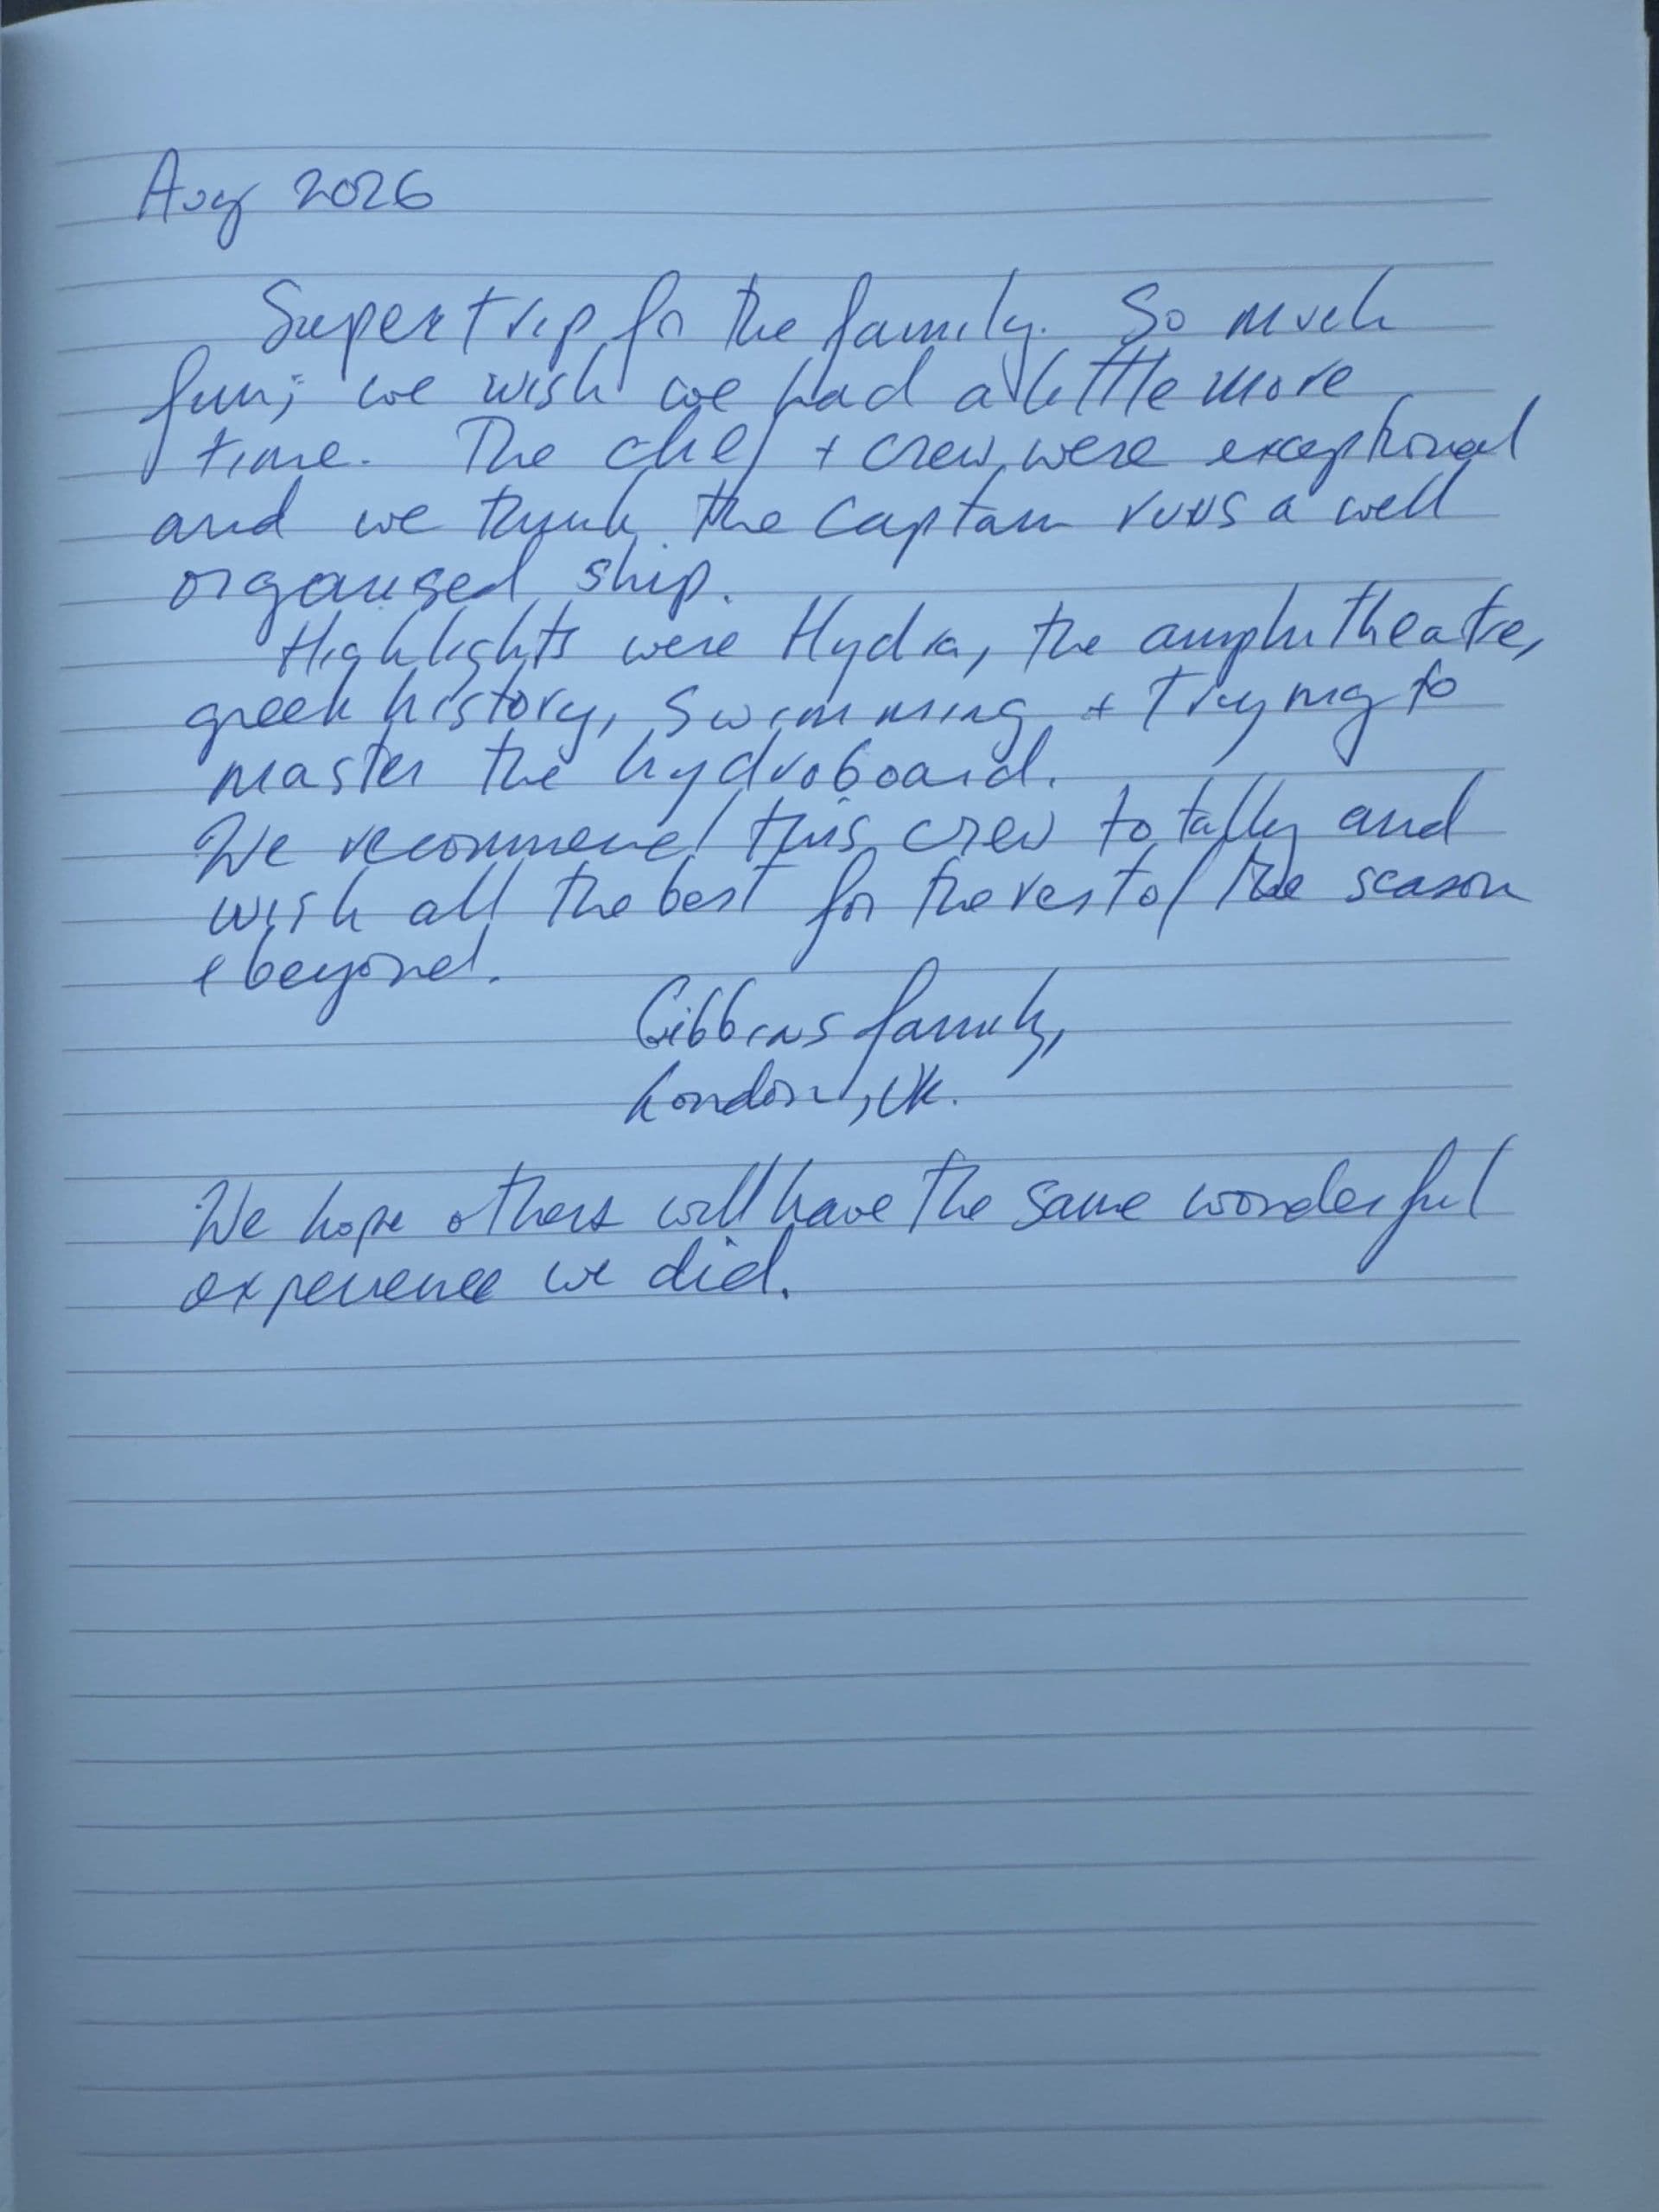 Aug 2026
Super trip for the family. So much
fun; we wish we had a little more
time. The chef + crew were exceptional
and we think the captain runs a well
organised ship.
Highlights were Hydra, the amphitheatre,
greek history, swimming + trying to
master the hydroboard.
We recommend this crew totally and
wish all the best for the rest of the season
& beyond.
Gibbins family,
London, UK.
We hope others will have the same wonderful
experience we did.